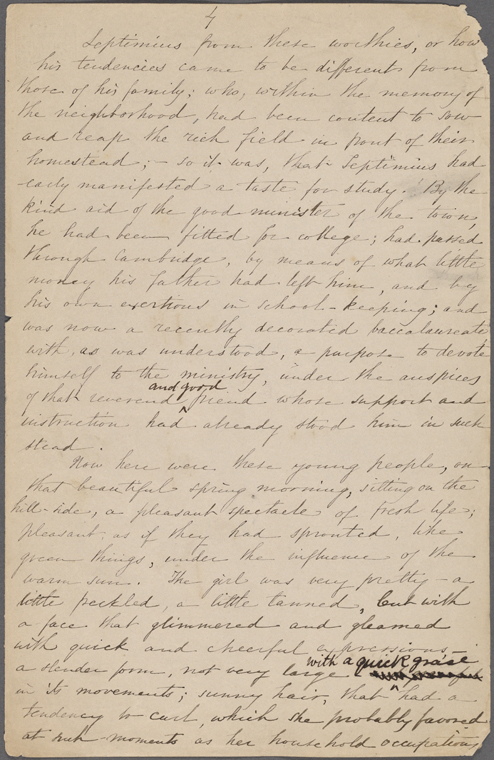 4
Septimius from these worthies, or how
his tendencies came to be different from
those of his family; who, within the memory of
the neighborhood, had been content to sow
and reap the rich field in front of their
homestead; - so it was, that Septimius had
early manifested a taste for study. By the
kind aid of the good minister of the town,
he had been fitted for college; had passed
through Cambridge, by means of what little
money his father had left him, and by
his own exertions in school-keeping; and
was now a recently decorated baccalaureate
with, as was understood, a purpose to devote
himself to the ministry, under the auspices
of that reverend and good friend whose support and
instruction had already stood him in such
stead.
Now here were these young people, on
that beautiful spring morning, sitting on the
hill-side, a pleasant spectacle of fresh life;
pleasant, as if they had sprouted, like
green things, under the influence of the
warm sun. The girl was very pretty - a
little freckled, a little tanned, but with
a face that glimmered and gleamed
with quick and cheerful expressions;
a slender form, not very large with a quick grace
in its movements; sunny hair, that had a
tendency to curl, which she probably favored
at such moments as her household occupation